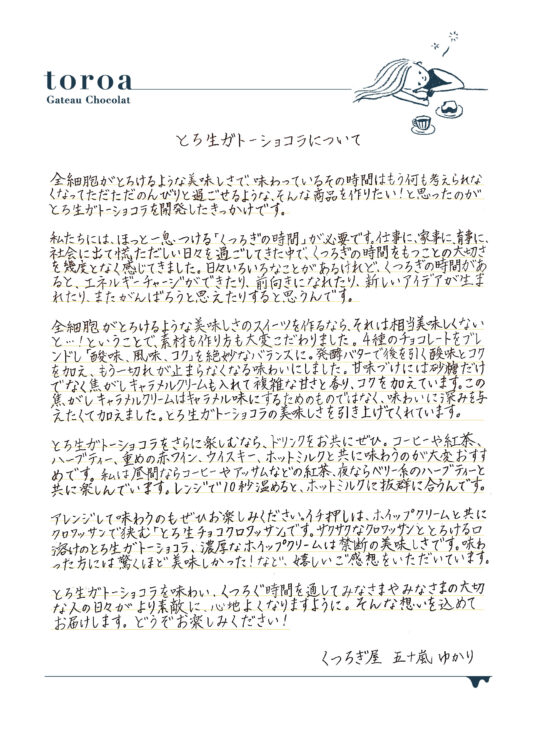 toroa
Gateau Chocolat
とろ生ガトーショコラについて
全細胞がとろけるような美味しさで、味わっているその時間はもう何も考えられな
くなってただただのんびりと過ごせるような、そんな商品を作りたい!と思ったのが
とろ生ガトーショコラを開発したきっかけです。
私たちには、ほっと一息つける「くつろぎの時間」が必要です。仕事に、家事に、育事に、
社会に出て慌ただしい日々を過ごしてきた中で、くつろぎの時間をもつことの大切さ
を幾度となく感じてきました。日々いろいろなことがあるけれど、くつろぎの時間があ
ると、エネルギーチャージができたり、前向きになれたり、新しいアイデアが生ま
れたり、またがんばろうと思えたりすると思うんです。
全細胞がとろけるような美味しさのスイーツを作るなら、それは相当美味しくない
と…!ということで、素材も作り方も大変こだわりました。4種のチョコレートをブレ
ンドし「酸味、風味、コク」を絶妙なバランスに。発酵バターで後を引く酸味とコク
を加え、もう一切れが止まらなくなる味わいにしました。甘味づけには砂糖だけ
でなく焦がしキャラメルクリームも入れて複雑な甘さと香り、コクを加えています。この
焦がしキャラメルクリームはキャラメル味にするためのものではなく、味わいに深みを与
えたくて加えました。とろ生ガトーショコラの美味しさを引き上げてくれています。
とろ生ガトーショコラをさらに楽しむなら、ドリンクをお共にぜひ。コーヒーや紅茶、
ハーブティー、重めの赤ワイン、ウイスキー、ホットミルクと共に味わうのが大変おすす
めです。私は昼間ならコーヒーやアッサムなどの紅茶、夜ならベリー系のハーブティーと
共に楽しんでいます。レンジで10秒温めると、ホットミルクに抜群に合うんです。
アレンジして味わうのもぜひお楽しみください。イチ押しは、ホイップクリームと共に
クロワッサンで挟む「とろ生チョコクロワッサン」です。ザクザクなクロワッサンととろける口
溶けのとろ生ガトーショコラ、濃厚なホイップクリームは禁断の美味しさです。味わ
った方には驚くほど美味しかった!など、嬉しいご感想をいただいています。
とろ生ガトーショコラを味わい、くつろぐ時間を通してみなさまやみなさまの大切
な人の日々がより素敵に、心地よくなりますように。そんな想いを込めて
お届けします。どうぞお楽しみください!
くつろぎ屋 五十嵐 ゆかり